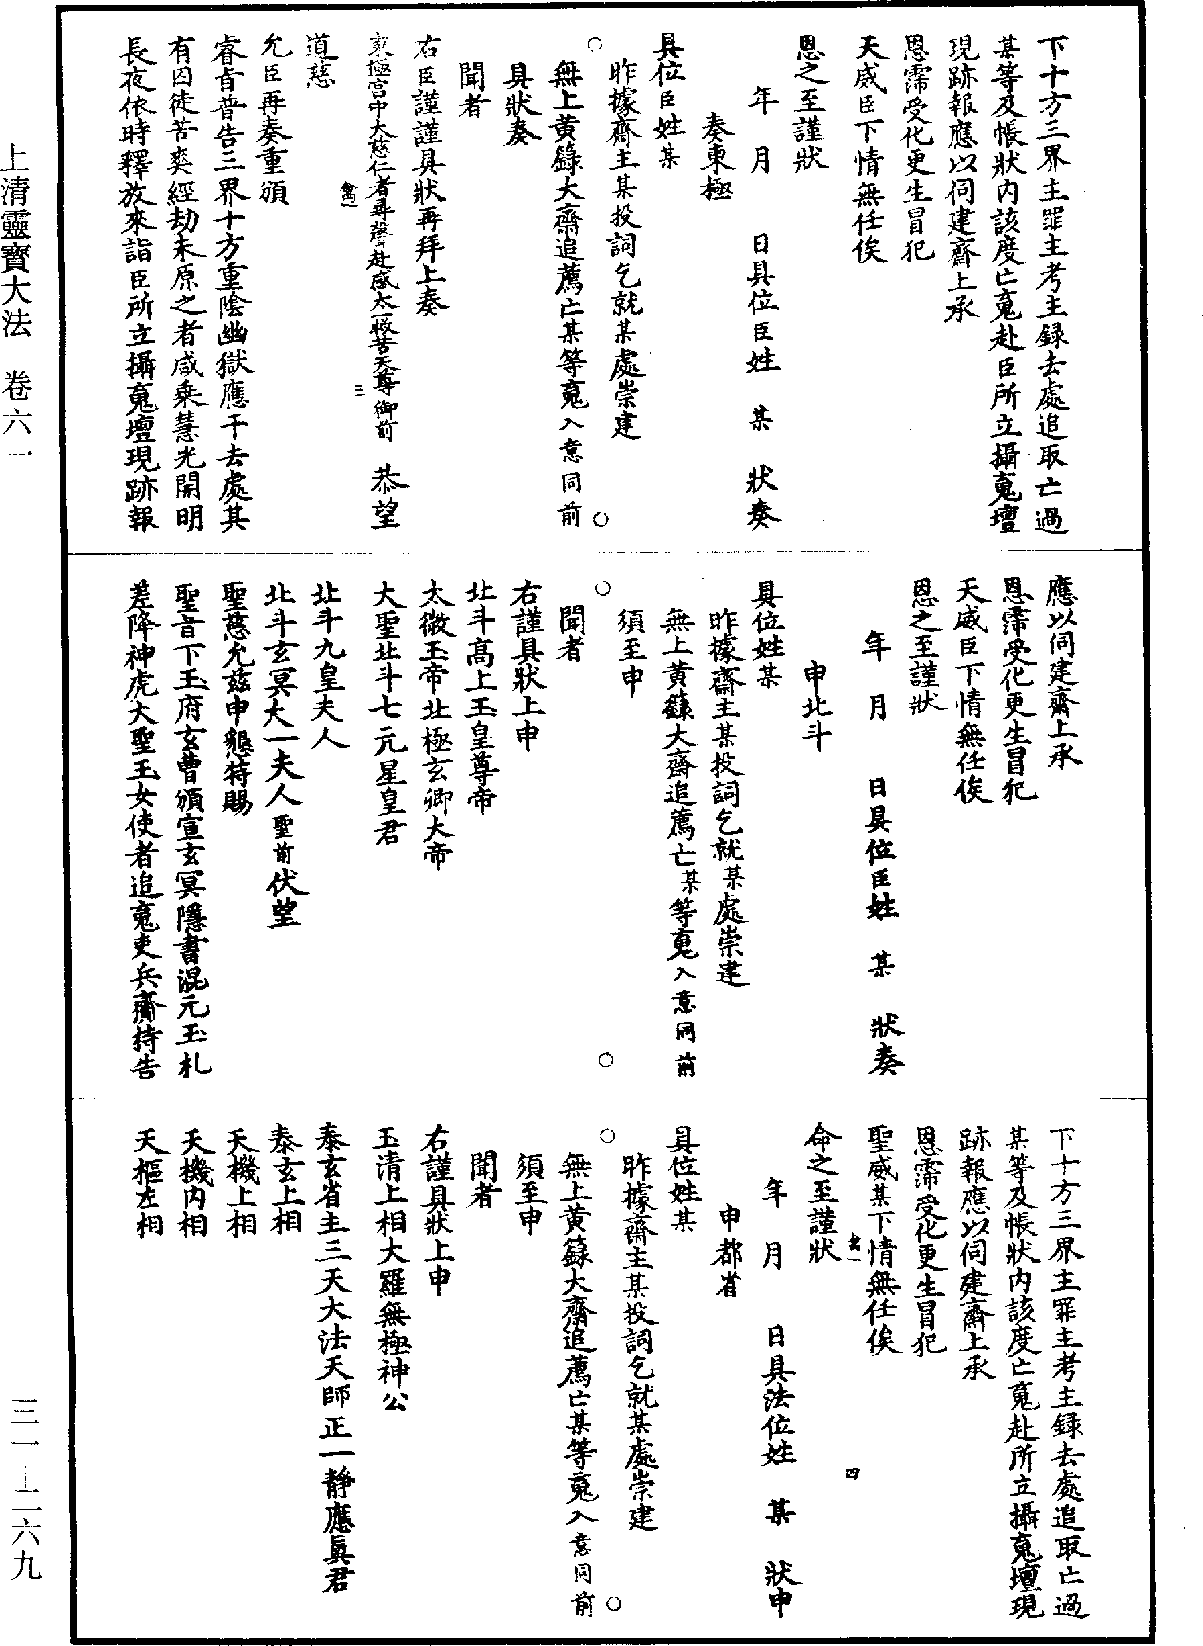 下十方三界主罪主考主録去處追取亡過
某等及帳狀内該度亡䰟赴臣所立攝䰟壇
現跡報應以伺建齋上承
恩霈受化更生冒犯
天威臣下情無任俟
恩之至謹狀
年　月　　日具位臣姓　某　狀奏
奏東極
具位臣姓某
昨據齋主某投詞乞就某處崇建
○　　　　　　　　○
無上黄籙大齋追薦亡某等䰟入意同前
具狀奏
聞者
右臣謹謹具狀再拜上奏
東極宫中大慈仁者尋聲赴感太一救苦天尊御前　恭望
三
道慈
允臣再奏重頒
睿旨普告三界十方重陰幽獄應干去處其
有囚徒苦爽經劫未原之者咸乘慧光開明
長夜依時釋放來詣臣所立攝䰟壇現跡報
應以伺建齋上承
恩霈受化更生冒犯
天威臣下情無任俟
恩之至謹狀
年　月　　日具位臣姓　某　狀奏
申北斗
具位姓某
昨據齋主某投詞乞就某處崇建
無上黄籙大齋追薦亡某等䰟入意同前
須至申
○　　　　　　　　○
聞者
右謹具狀上申
北斗高上玉皇尊帝
太微玉帝北極玄卿大帝
大聖北斗七元星皇君
北斗九皇夫人
北斗玄冥大一夫人聖前伏望
聖慈允兹申懇特賜
聖旨下玉府玄曹頒宣玄冥隱書混元玉札
差降神虎大聖玉女使者追䰟吏兵齎持告
下十方三界主罪主考主録去處追取亡過
某等及帳狀内該度亡䰟赴所立攝䰟壇現
跡報應以伺建齋上承
恩霈受化更生冒犯
聖威某下情無任俟
四
命之至謹狀
年　月　　日具法位姓　某　狀申
申都省
具位姓某
昨據齋主某投詞乞就某處崇建
○　　　　　　　　○
無上黄籙大齋追薦亡某等䰟入意同前
須至申
聞者
右謹具狀上申
玉清上相大羅無極神公
泰玄省主三天大法天師正一静應眞君
泰玄上相
天機上相
天機内相
天樞左相
上清靈寶大法　卷六一
三一—二六九